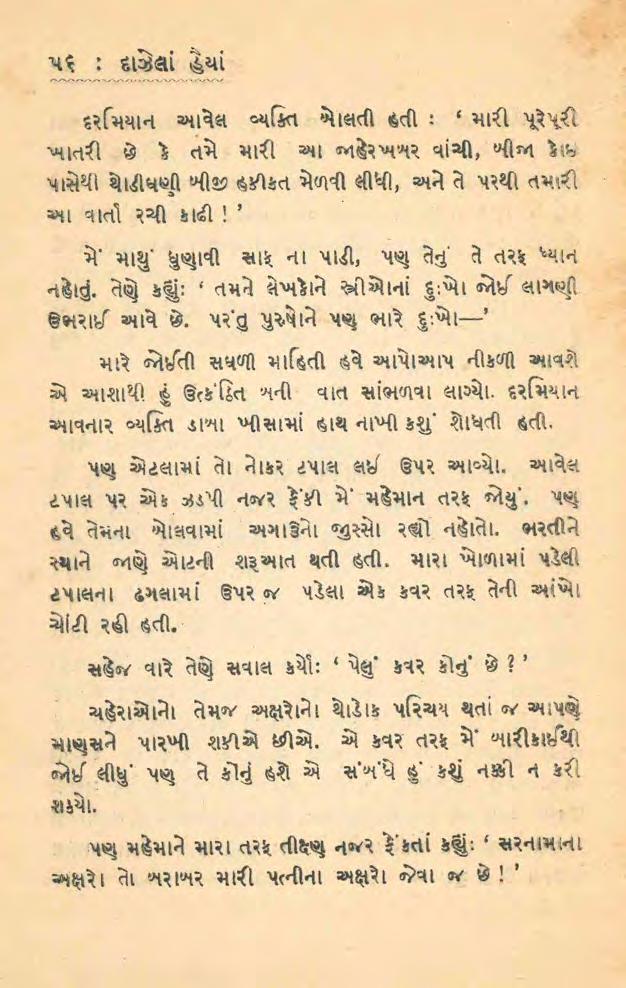 ૫૬ : દાઝેલાં હૈયાં
દરમિયાન આવેલ વ્યક્તિ બોલતી હતી : ‘ મારી પૂરેપૂરી
ખાતરી છે કે તમે મારી આ જાહેરખબર વાંચી, બીજા કોઇ
પાસેથી થોડીઘણી બીજી હકીકત મેળવી લીધી, અને તે પરથી તમારી
આ વાર્તા રચી કાઢી ! ’
મેં માથું ધુણાવી સાફ ના પાડી, પણ તેનું તે તરફ ધ્યાન
નહોતું. તેણે કહ્યું: ‘ તમને લેખકોને સ્ત્રીઓનાં દુઃખો જોઈ લાગણી
ઉભરાઈ આવે છે. પરંતુ પુરુષોને પણ ભારે દુઃખો—’
મારે જોઈતી સઘળી માહિતી હવે આપોઆપ નીકળી આવશે
એ આશાથી હું ઉત્કંઠિત બની વાત સાંભળવા લાગ્યો. દરમિયાન
આવનાર વ્યક્તિ ડાબા ખીસામાં હાથ નાખી કશું શોધતી હતી.
પણ એટલામાં તો નોકર ટપાલ લઇ ઉપર આવ્યો. આવેલ
ટપાલ પર એક ઝડપી નજર ફેંકી મેં મહેમાન તરફ જોયું. પણ
હવે તેમના બોલવામાં અગાઉનો જુસ્સો રહ્યો નહોતો. ભરતીને
સ્થાને જાણે ઓટની શરૂઆત થતી હતી. મારા ખોળામાં પડેલી
ટપાલના ઢગલામાં ઉપર જ પડેલા એક કવર તરફ તેની આંખો
ચોંટી રહી હતી.
સહેજ વારે તેણે સવાલ કર્યો: ‘ પેલું કવર કોનું છે ? ’
ચહેરાઓનો તેમજ અક્ષરોનો થોડોક પરિચય થતાં જ આપણે
માણસને પારખી શકીએ છીએ. એ કવર તરફ મેં બારીકાઈથી
જોઈ લીધું પણ તે કોનું હશે એ સંબંધે હું કશું નક્કી ન કરી
શક્યો.
પણ મહેમાને મારા તરફ તીક્ષ્ણ નજર ફેંકતાં કહ્યું: ‘ સરનામાના
અક્ષરો તો બરાબર મારી પત્નીના અક્ષરો જેવા જ છે ! ’